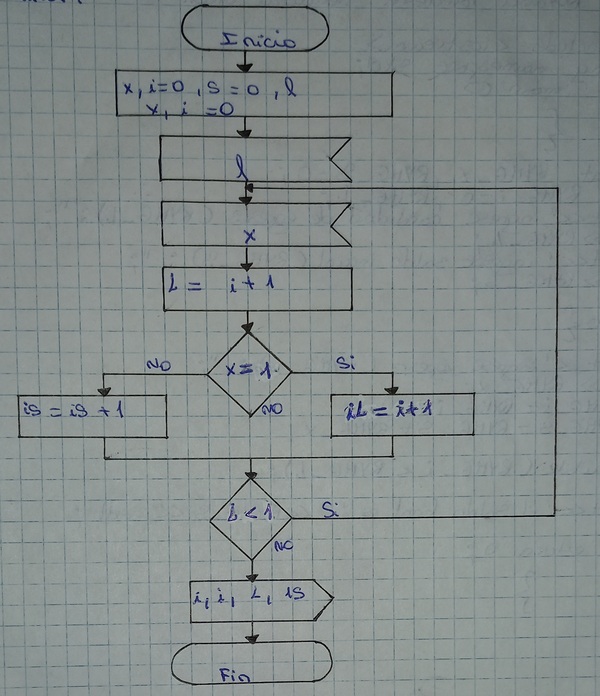 Inicio
x, i=0, s=0, l
x, i =0
l
x
L = i+1
x=1.
NO
Si
NO
is = is +1
iL = i+1
L < 1.
Si
NO
i, i, L, is
Fin